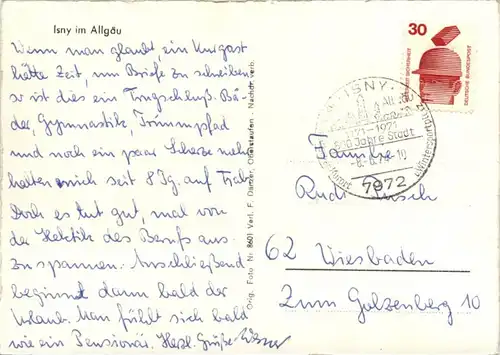 Isny im Allgäu
Wenn man glaubt, ein Kurgast
hätte Zeit, um Briefe zu schreiben,
so ist dies ein Trugschluß. Bä-
der, Gymnastik, Trimmpfad
und noch ein paar Scherze mehr
halten mich seit 8 Tg. auf Trab.
Doch es tut gut, mal von
der Hektik des Berufs aus-
zuspannen. Anschließend
beginnt dann bald der
Urlaub. Man fühlt sich bald
wie ein Pensionär. Herzl. Grüße
Orig. Foto Nr. 8601 Verl. F. Danzer, Oberstaufen Nachdr. verb.
30
DEUTSCHE BUNDESPOST
ISNY
1171-1971
800 Jahre Stadt
7972
Familie
Rudi
62 Wiesbaden
Zum Golzenberg 10